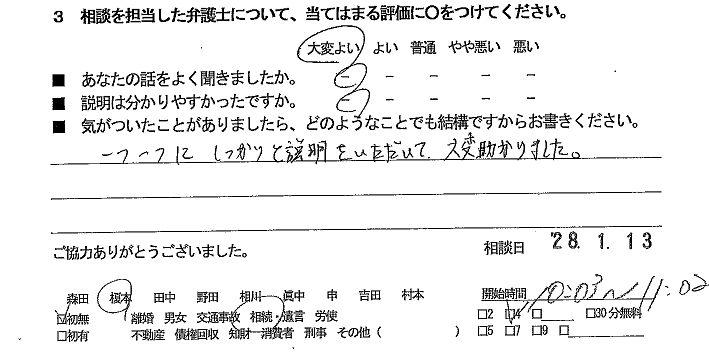 3 相談を担当した弁護士について、当てはまる評価に〇をつけてください。
大変よい よい 普通 やや悪い 悪い
■ あなたの話をよく聞きましたか。 － － － － －
■ 説明は分かりやすかったですか。 － － － － －
■ 気がついたことがありましたら、どのようなことでも結構ですからお書きください。
一つ一つに しっかりと説明をいただいて、大変助かりました。
ご協力ありがとうございました。
相談日 '28.1.13
森田 榎本 田中 野田 相川 眞中 申 吉田 村本 開始時間 10:03〜11:02
☑初無 離婚 男女 交通事故 相続・遺言 労使 □2 ☑4 □ □30分無料
□初有 不動産 債権回収 知財 消費者 刑事 その他( ) □5 □7 □9 □